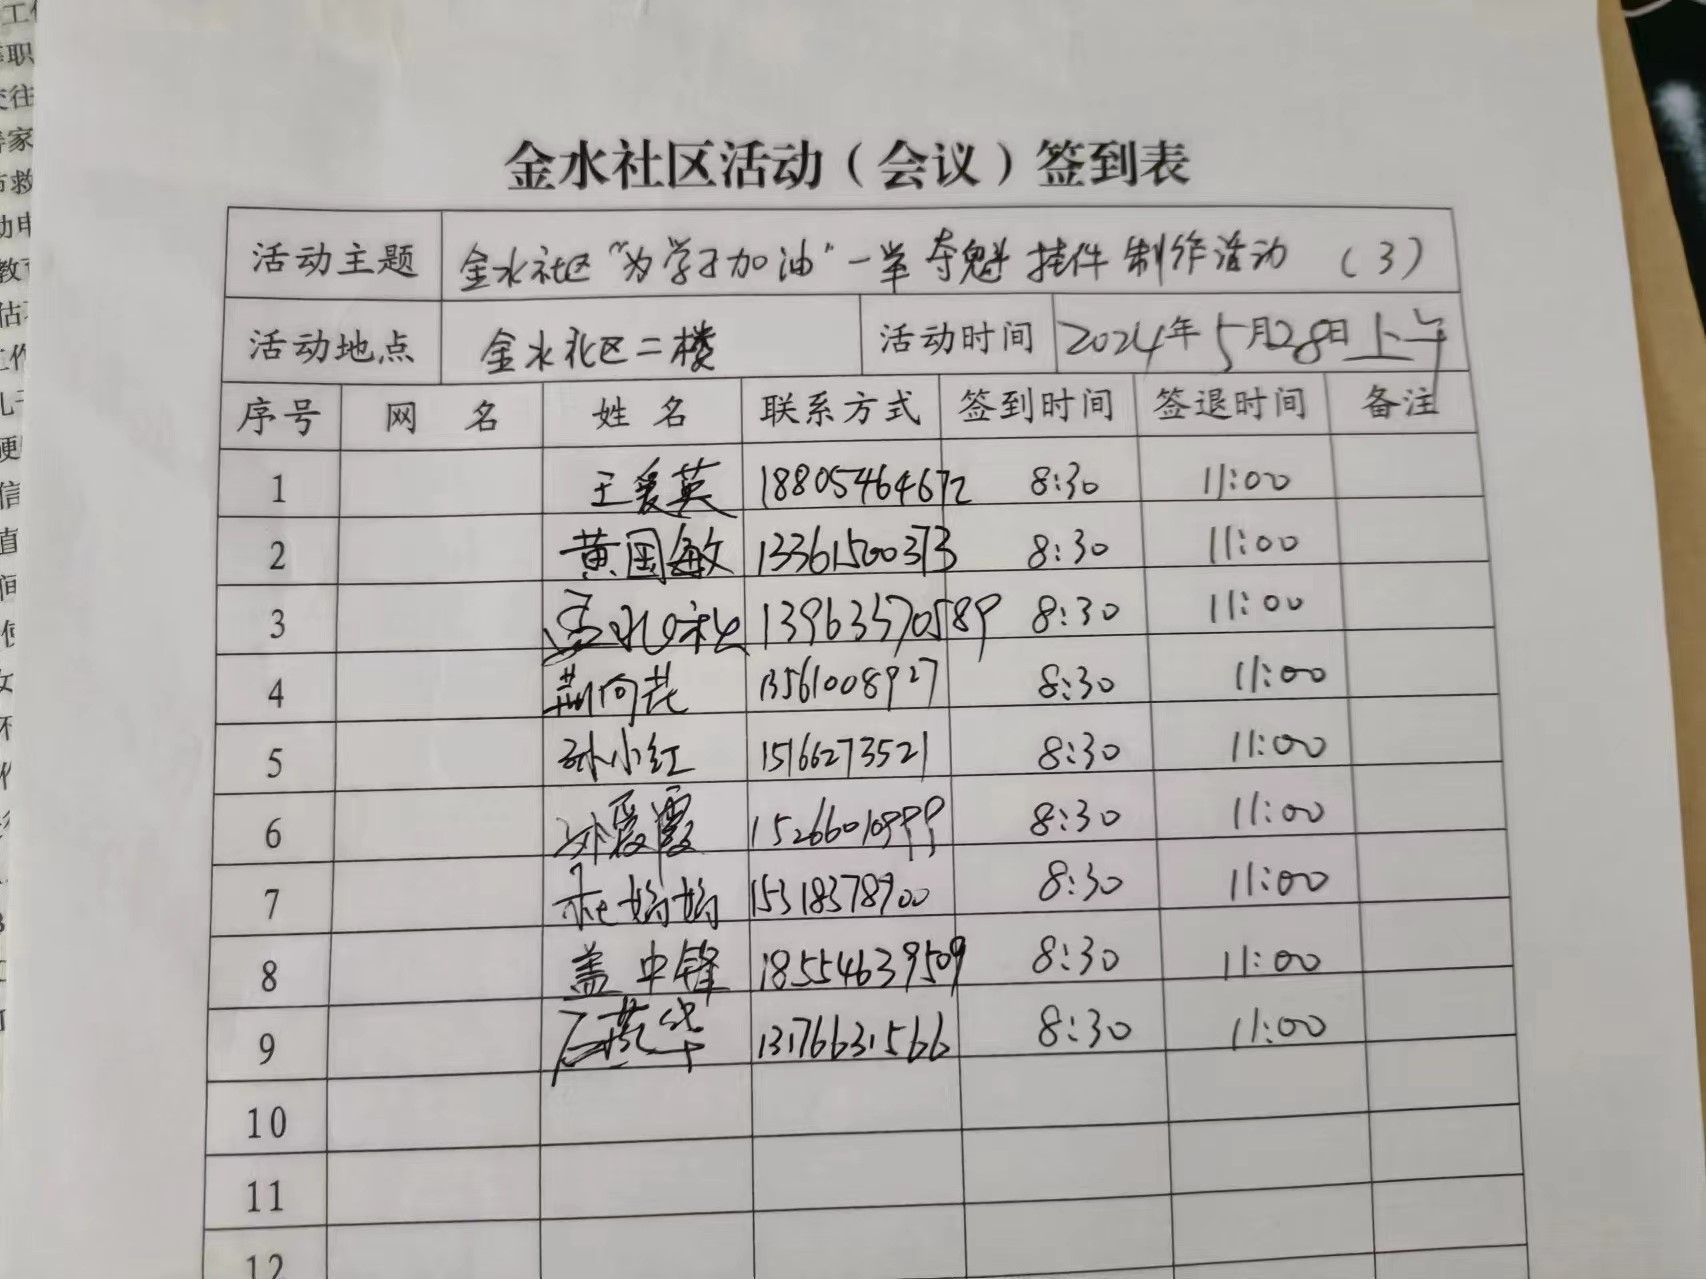 金水社区活动（会议）签到表
活动主题 金水社区“为学子加油”一举夺魁挂件制作活动 （3）
活动地点 金水社区二楼 活动时间 2024年5月28日上午
序号 网 名 姓 名 联系方式 签到时间 签退时间 备注
1 王爱英 18805464672 8:30 11:00
2 黄国敏 13361500373 8:30 11:00
3 13963570589 8:30 11:00
4 荆向花 13561008927 8:30 11:00
5 孙小红 15166273521 8:30 11:00
6 孙爱霞 15266010999 8:30 11:00
7 杜娟娟 15318378900 8:30 11:00
8 盖中锋 18554639509 8:30 11:00
9 燕华 13176631566 8:30 11:00
10
11
12